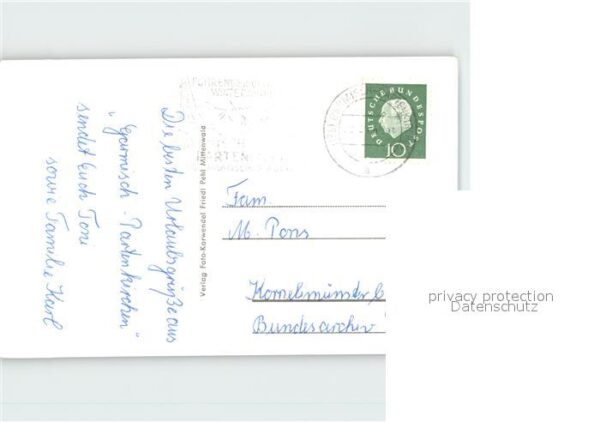 Die besten Urlaubsgrüße aus
"Garmisch-Partenkirchen"
sendet Euch Toni
sowie Familie Karl
Verlag Foto-Karwendel Friedl Pehl Mittenwald
DEUTSCHE BUNDESPOST
10
Fam.
M. Pons
Kornelimünster
Bundesarchiv
privacy protection
Datenschutz